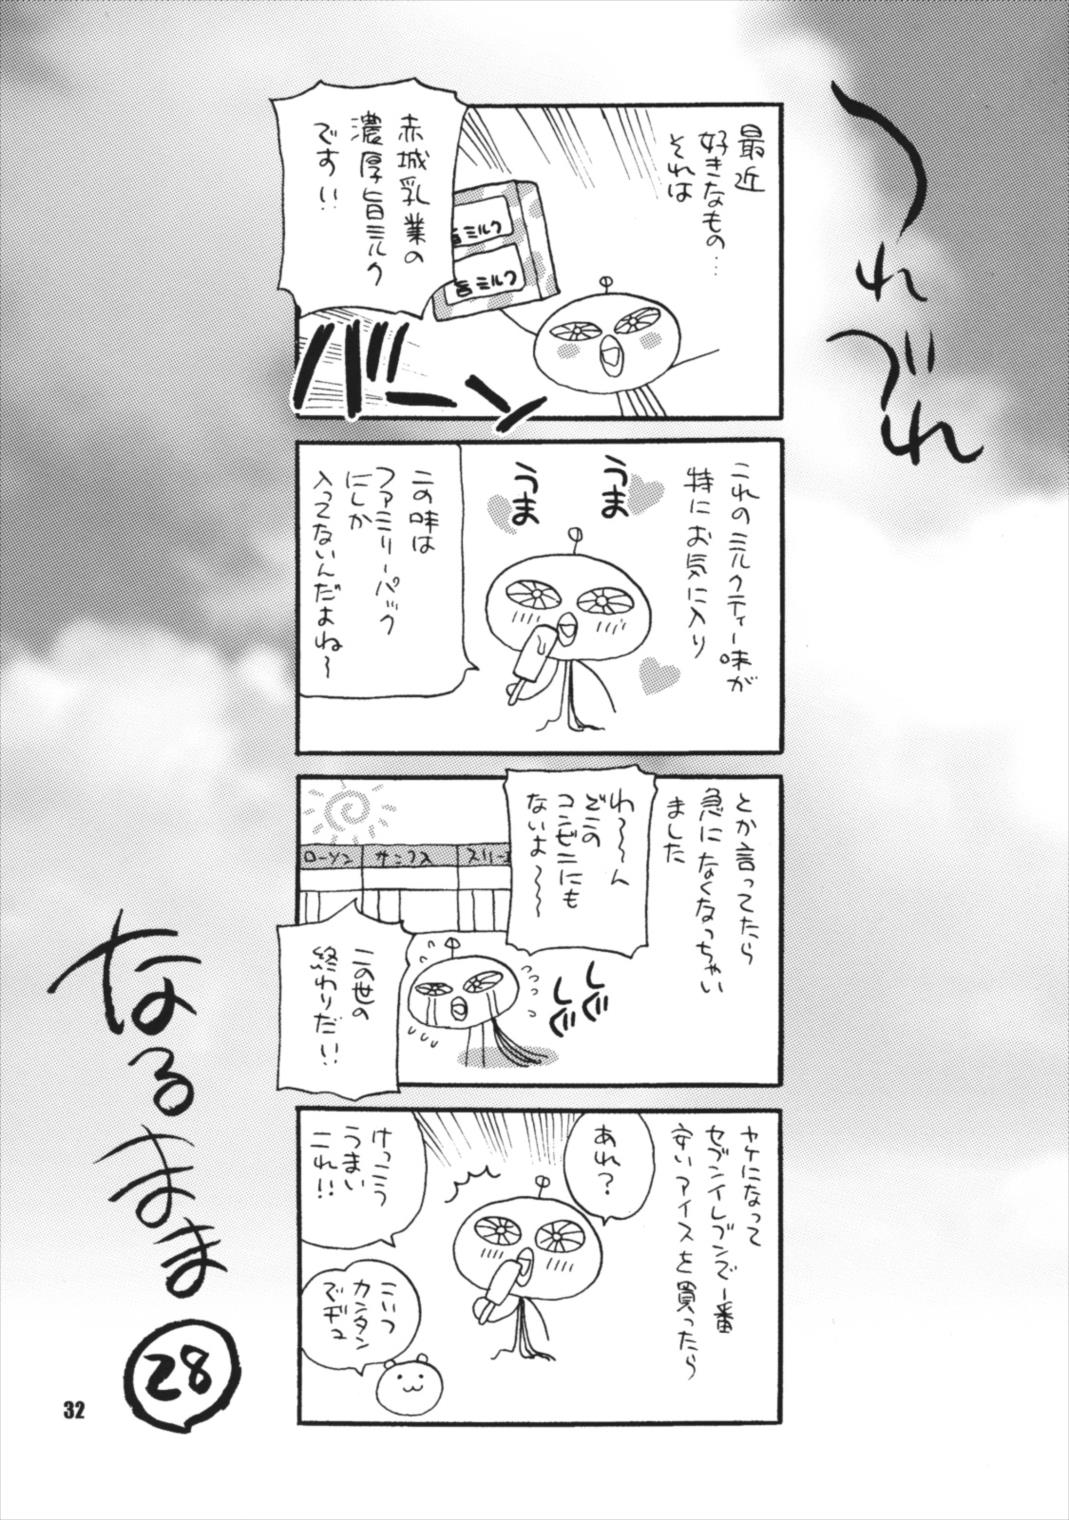 つれ
づれ
最近
好きなもの…
それは
赤城乳業の
濃厚旨ミルク
です!!
旨ミルク
旨ミルク
バーン
これのミルクティー味が
特にお気に入り
うま
うま
この味は
ファミリーパック
にしか
入ってないんだよね〜
とか言ってたら
急になくなっちゃい
ました
わ〜〜〜ん
どこの
コンビニにも
ないよ〜〜〜
ローソン
サンクス
スリーエ
しぐ
しぐ
この世の
終わりだ!!
ヤケになって
セブンイレブンで一番
安いアイスを買ったら
あれ?
けっこう
うまい
これ!!
こいつ
カンタン
でヂュ
なるまま
28
32